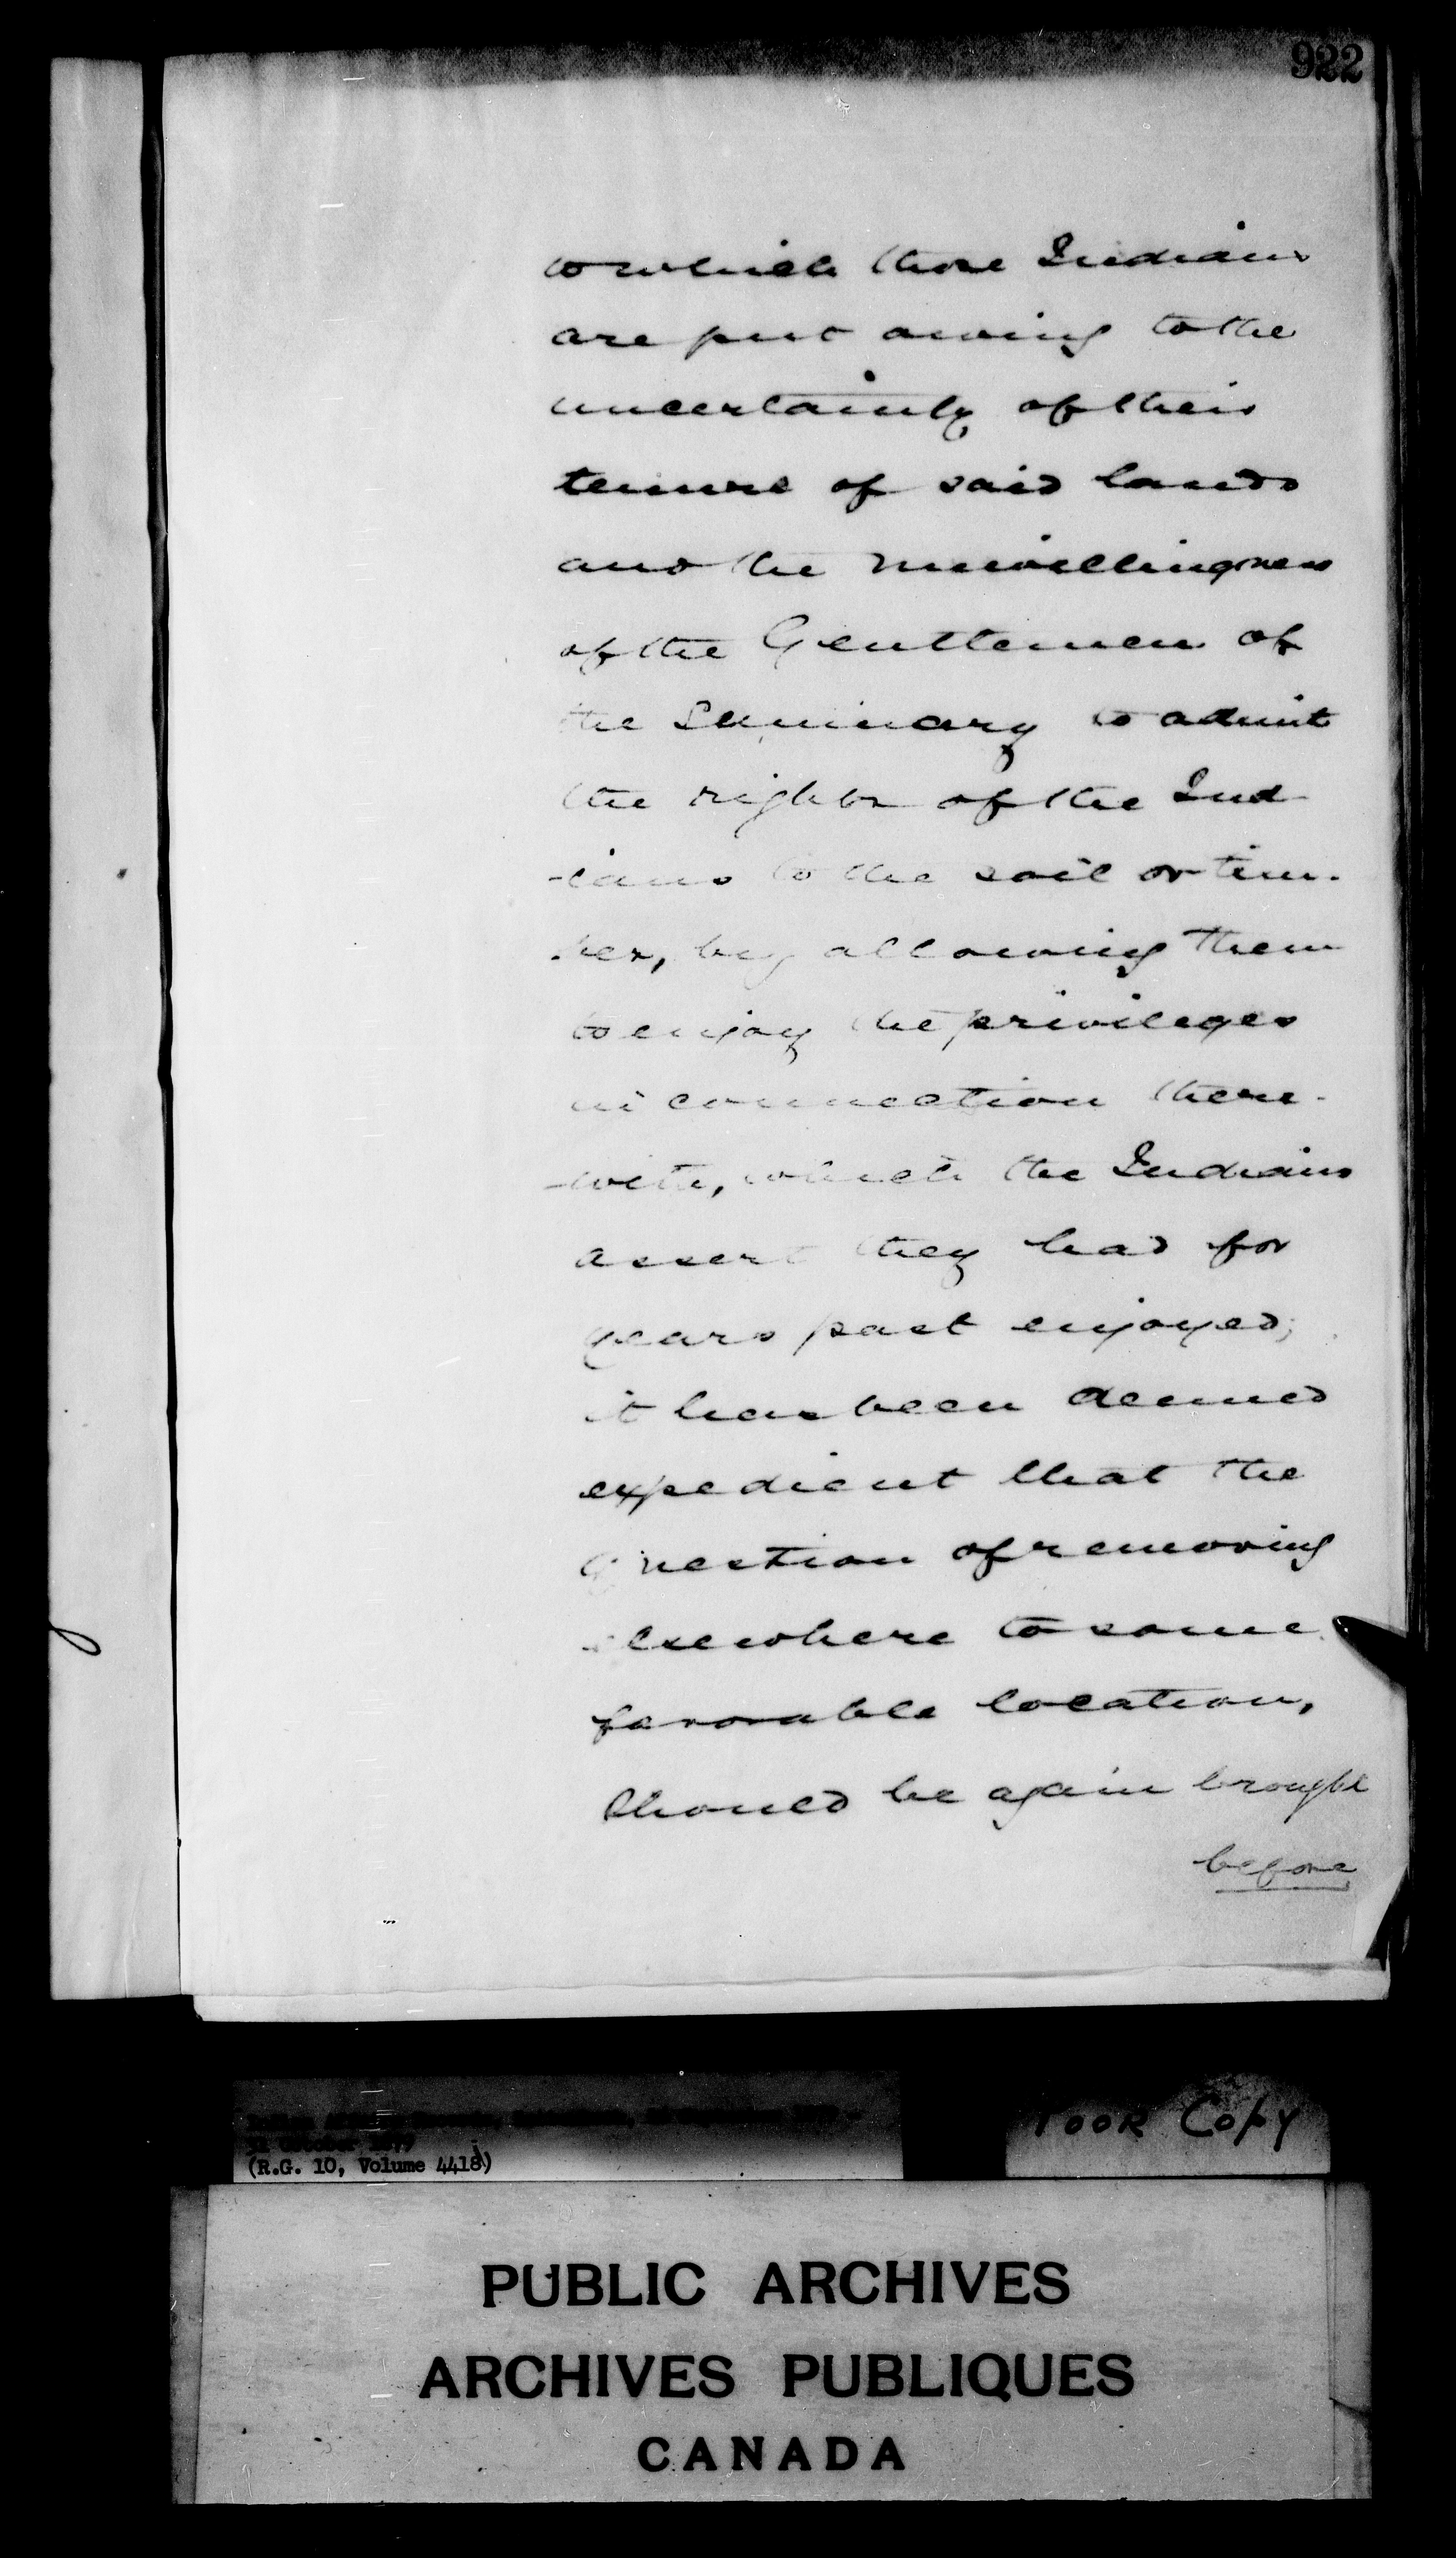 922
to which those Indians
are put owing to the
uncertainty of their
tenure of said lands
and the unwillingness
of the Gentlemen of
the Seminary to admit
the rights of the Ind
-ians to the soil or tim-
-ber, by allowing them
to enjoy the privileges
in connection there-
-with, which the Indians
assert they had for
years past enjoyed;
it has been deemed
expedient that the
question of removing
elsewhere to some
favorable location,
should be again brought
before
31 October 1879
(R.G. 10, Volume 4418)
POOR COPY
PUBLIC ARCHIVES
ARCHIVES PUBLIQUES
CANADA